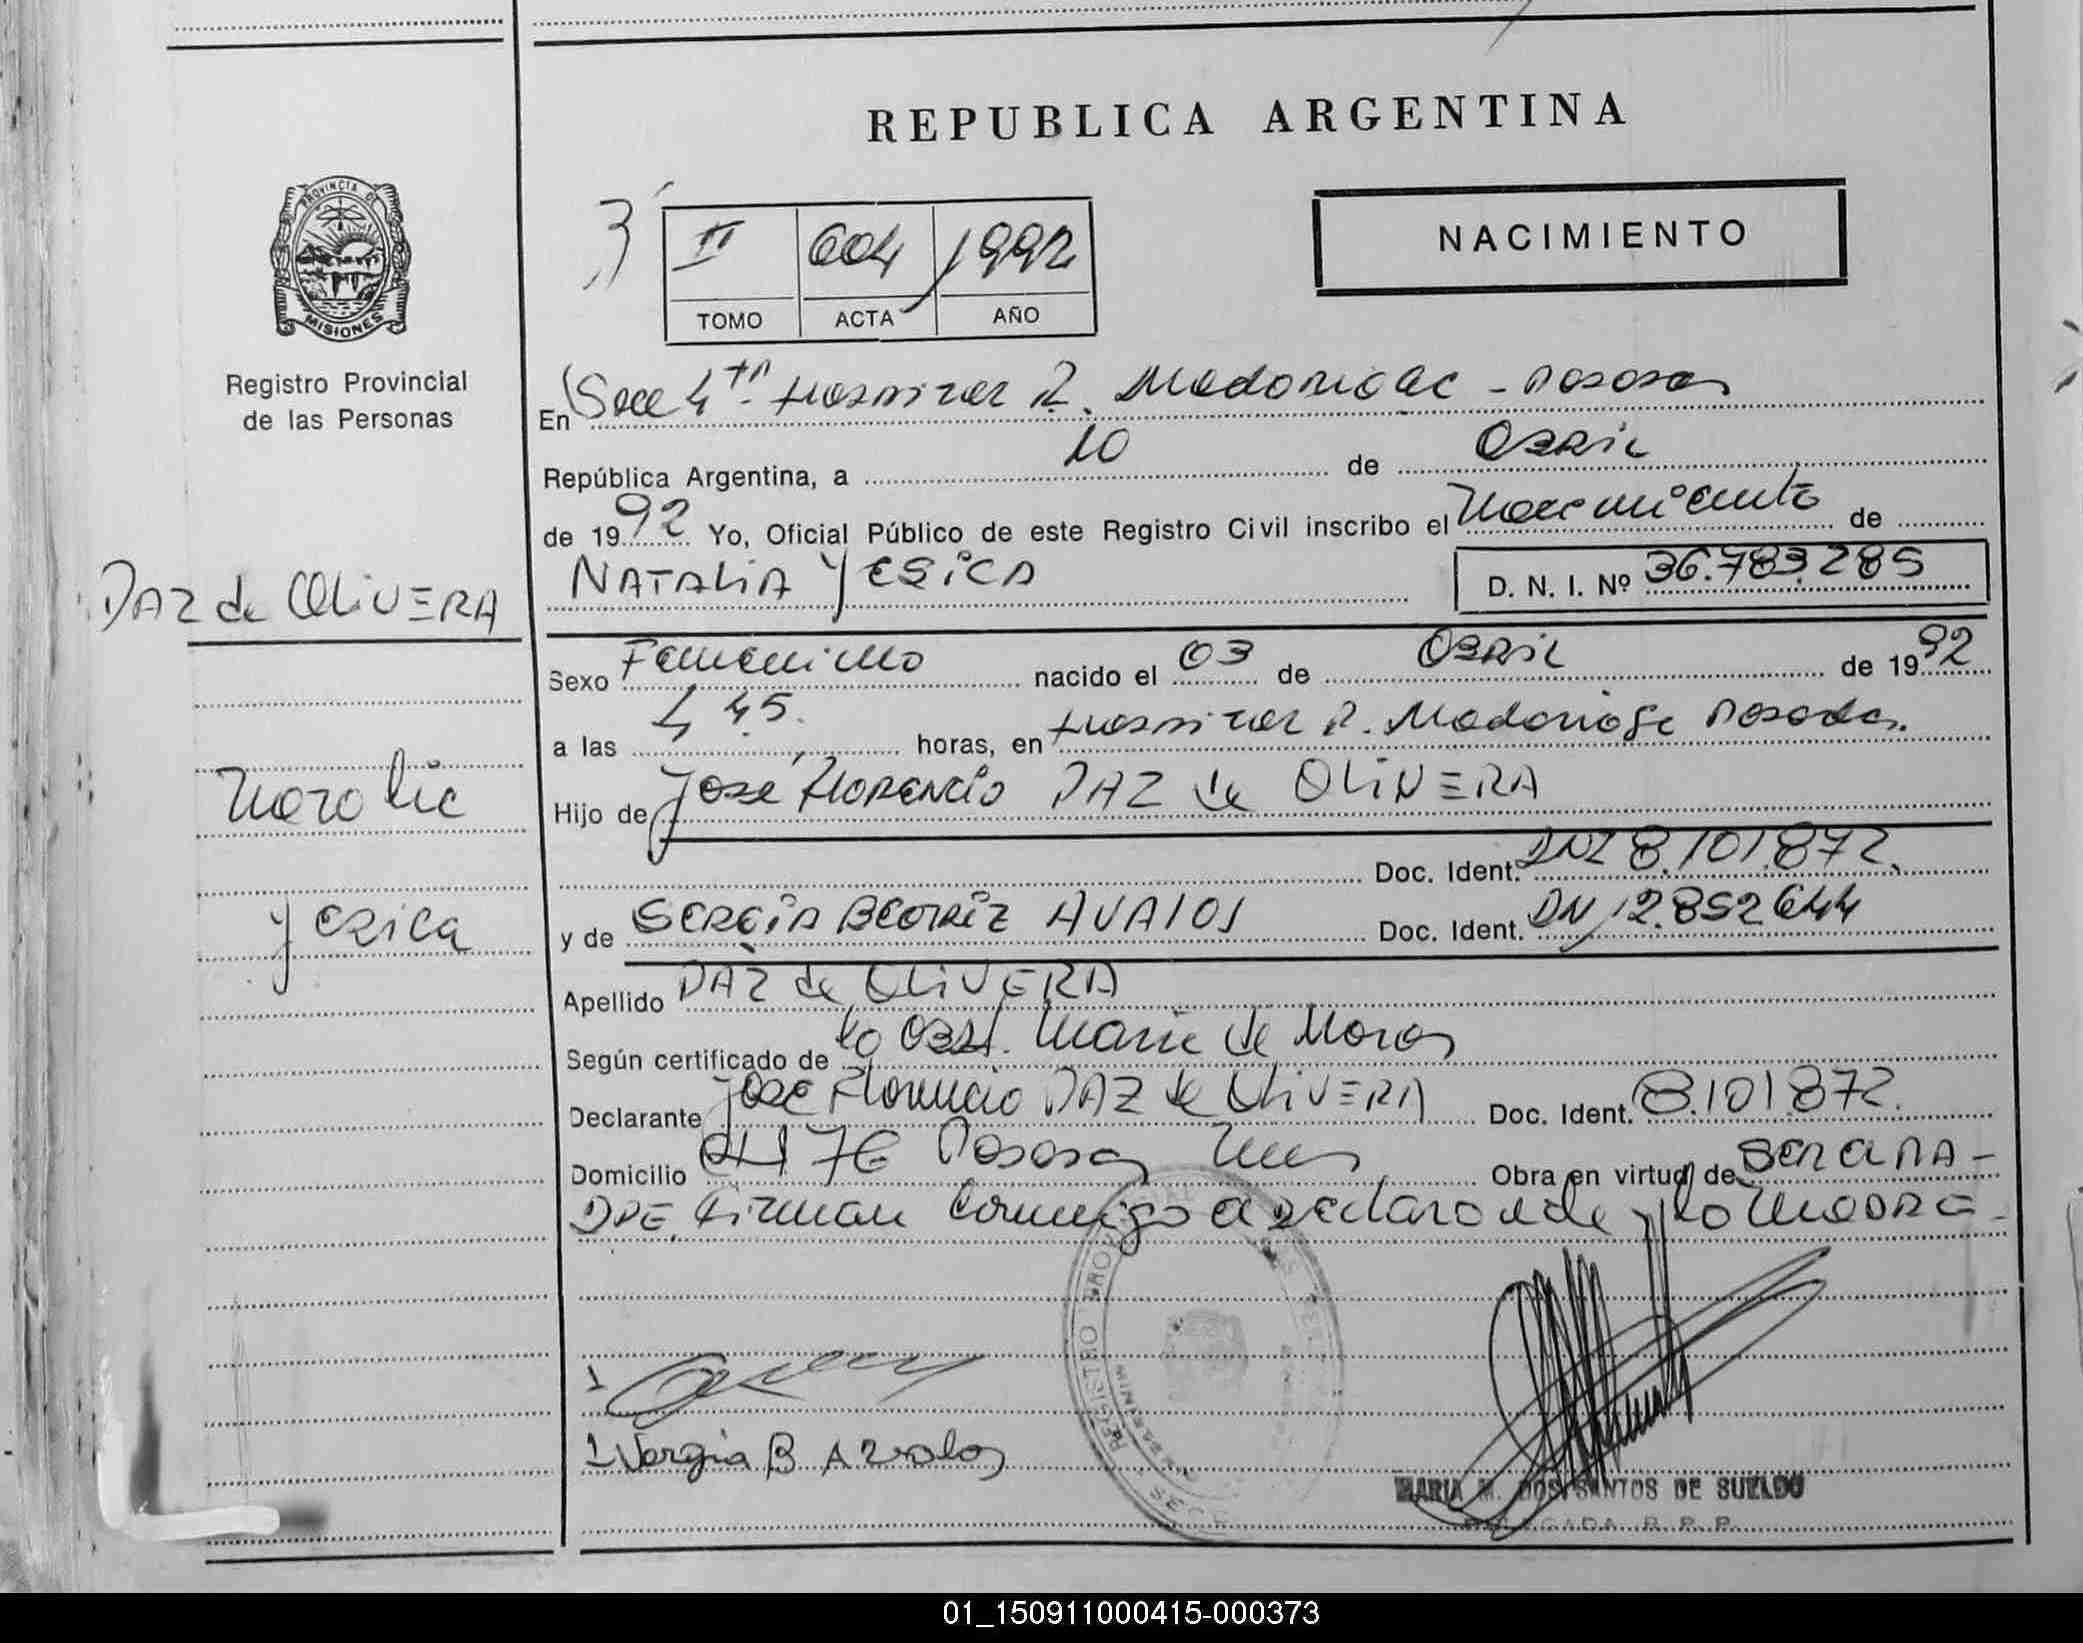 REPUBLICA ARGENTINA
NACIMIENTO
3
II 604 1992
TOMO ACTA AÑO
PROVINCIA DE
MISIONES
Registro Provincial
de las Personas
En Secc 4ta Hospital R. Madariaga - Posadas
República Argentina, a 10 de Abril
de 1992 Yo, Oficial Público de este Registro Civil inscribo el Nacimiento de
NATALiA YESiCA D. N. I. Nº 36.783.285
DAZ de OLiVERA
Sexo Femenino nacido el 03 de Abril de 1992
a las 4 45. horas, en Hospital R. Madariaga Posadas.
Natalia
Hijo de José Florencio DAZ de OLiVERA
Doc. Ident. DNI 8.101.872.
Yesica
y de SERGiA BEATRiZ AVALOS Doc. Ident. DNI 12.852644
Apellido DAZ de OLiVERA
Según certificado de la Obst. Maria de Moras
Declarante José Florencio DAZ de OLiVERA Doc. Ident. 8.101.872.
Domicilio 76 Posadas Mnes Obra en virtud de
Firman conmigo el declarante y la madre -
1
1 Sergia B Avalos
REGISTRO PROVINCIAL
MARIA M. DOS SANTOS DE SUELDO
DELEGADA R. P. P.
01_150911000415-000373